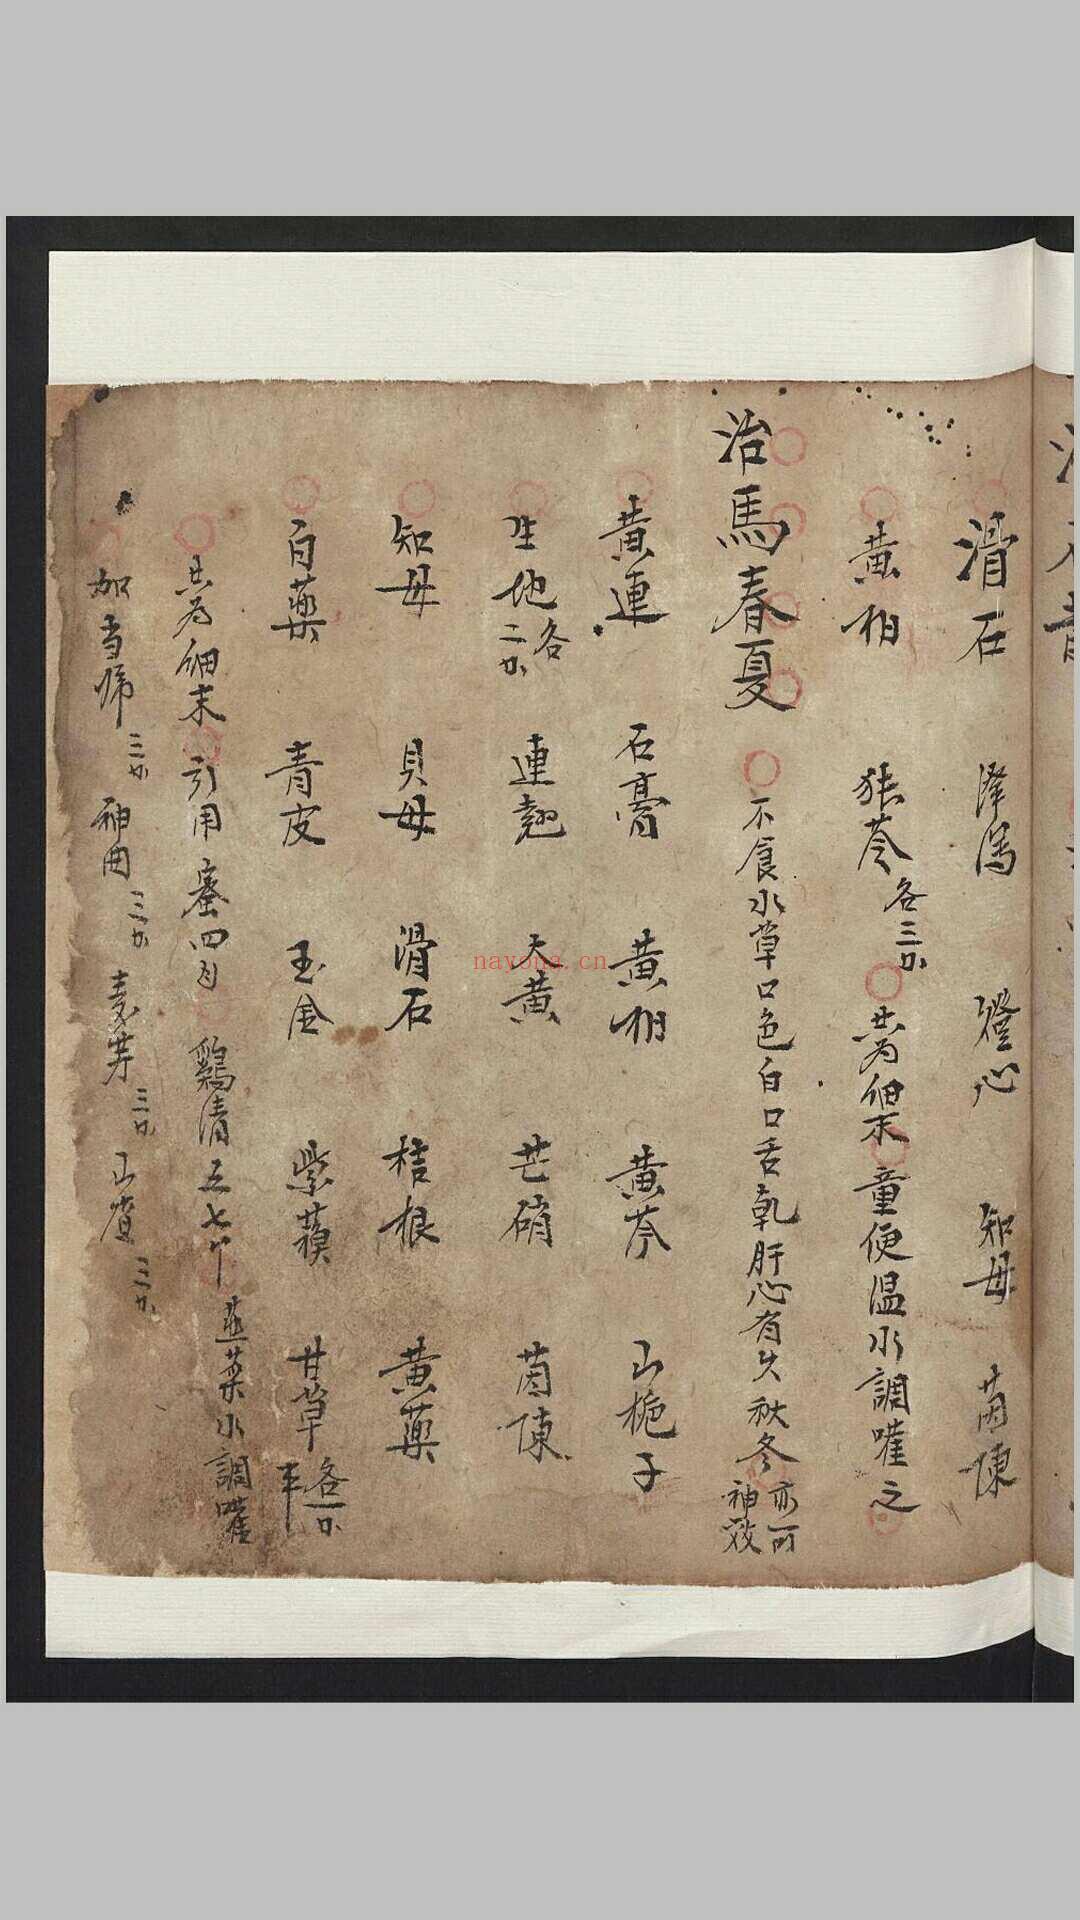 滑石 澤瀉 燈心 知母 茵陳
黄栢 猪苓 各三 共為細末 童便温水調嚾之
治馬春夏 不食水草口色白口舌乾肝心有火秋冬亦可神效
黄連 石膏 黄栢 黄芩 山梔子
生地 各二 連翹 大黄 芒硝 茵陳
知母 貝母 滑石 桔根 黄藥
白藥 青皮 玉金 紫蘓 甘草 各一 半
共為細末 引用 蜜四 鷄清五七个 韮菜水調嚾
加当归 三 神曲 三 麦芽 三 山查 三
nayona.cn